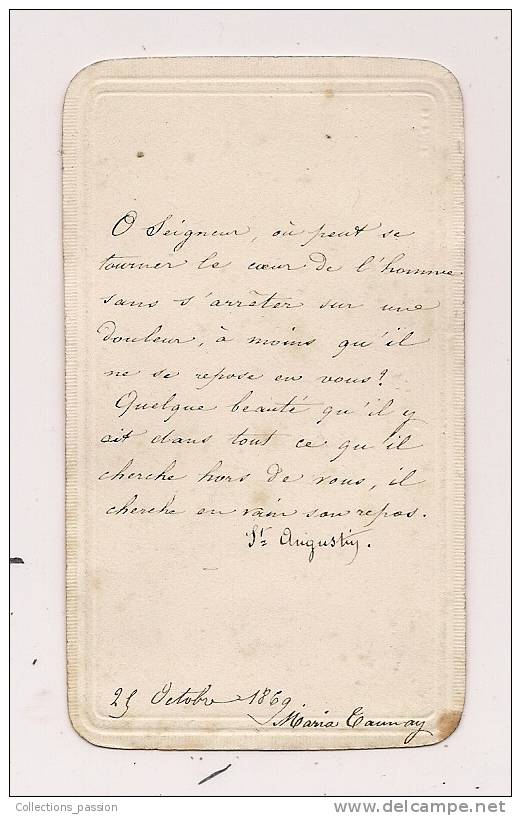 O Seigneur, où peut se
tourner le cœur de l'homme
sans s'arrêter sur une
douleur, à moins qu'il
ne se repose en vous?
Quelque beauté qu'il y
ait dans tout ce qu'il
cherche hors de vous, il
cherche en vain son repos.
St Augustin.
25 Octobre 1869
Maria Taunay
Collections_passion
delcampe.net